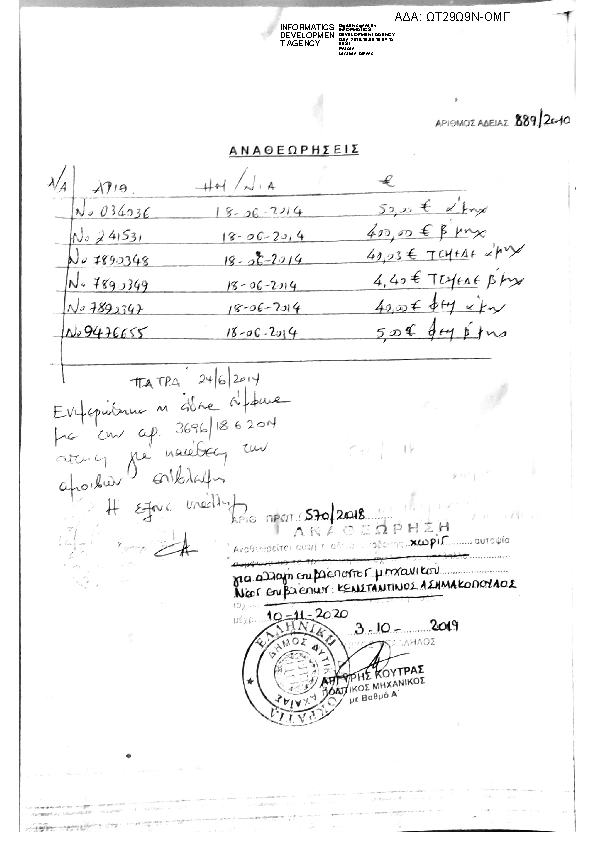 ΑΔΑ: ΩΤ29Ω9Ν-ΟΜΓ
INFORMATICS
DEVELOPMEN
T AGENCY
ΑΡΙΘΜΟΣ ΑΔΕΙΑΣ 889/2010
ΑΝΑΘΕΩΡΗΣΕΙΣ
Α/Α ΑΡΙΘ. ΗΜ/ΝΙΑ €
No 036036 18-06-2014 50,00 € α μηχ
No 241531 18-06-2014 400,00 € β μηχ
No 7890348 18-06-2014 40,03 € ΤΣΜΕΔΕ α μηχ
No 7890349 18-06-2014 4,40 € ΤΣΜΕΔΕ β μηχ
No 7890347 18-06-2014 40,00 € ΦΕΜ α μηχ
No 9476655 18-06-2014 5,00 € ΦΕΜ β μηχ
ΠΑΤΡΑ 24/6/2014
Ενημερώθηκε η άδεια σύμφωνα
με την αρ. 3696/18 6 2014
αίτηση για κατάθεση των
αμοιβών επίβλεψης
Η
ΑΡΙΘ. ΠΡΩΤ.: 570/2018
ΑΝΑΘΕΩΡΗΣΗ
Αναθεωρείται αυτή η χωρίς αυτοψία
για αλλαγή επιβλέποντος μηχανικού
Νέος επιβλέπων: ΚΩΝΣΤΑΝΤΙΝΟΣ ΑΣΗΜΑΚΟΠΟΥΛΟΣ
μέχρι 10-11-2020
3-10- 2019
ΕΛΛΗΝΙΚΗ ΔΗΜΟΚΡΑΤΙΑ
ΔΗΜΟΣ ΔΥΤΙΚΗΣ ΑΧΑΪΑΣ
ΑΡΓΥΡΗΣ ΚΟΥΤΡΑΣ
ΠΟΛΙΤΙΚΟΣ ΜΗΧΑΝΙΚΟΣ
με Βαθμό Α΄